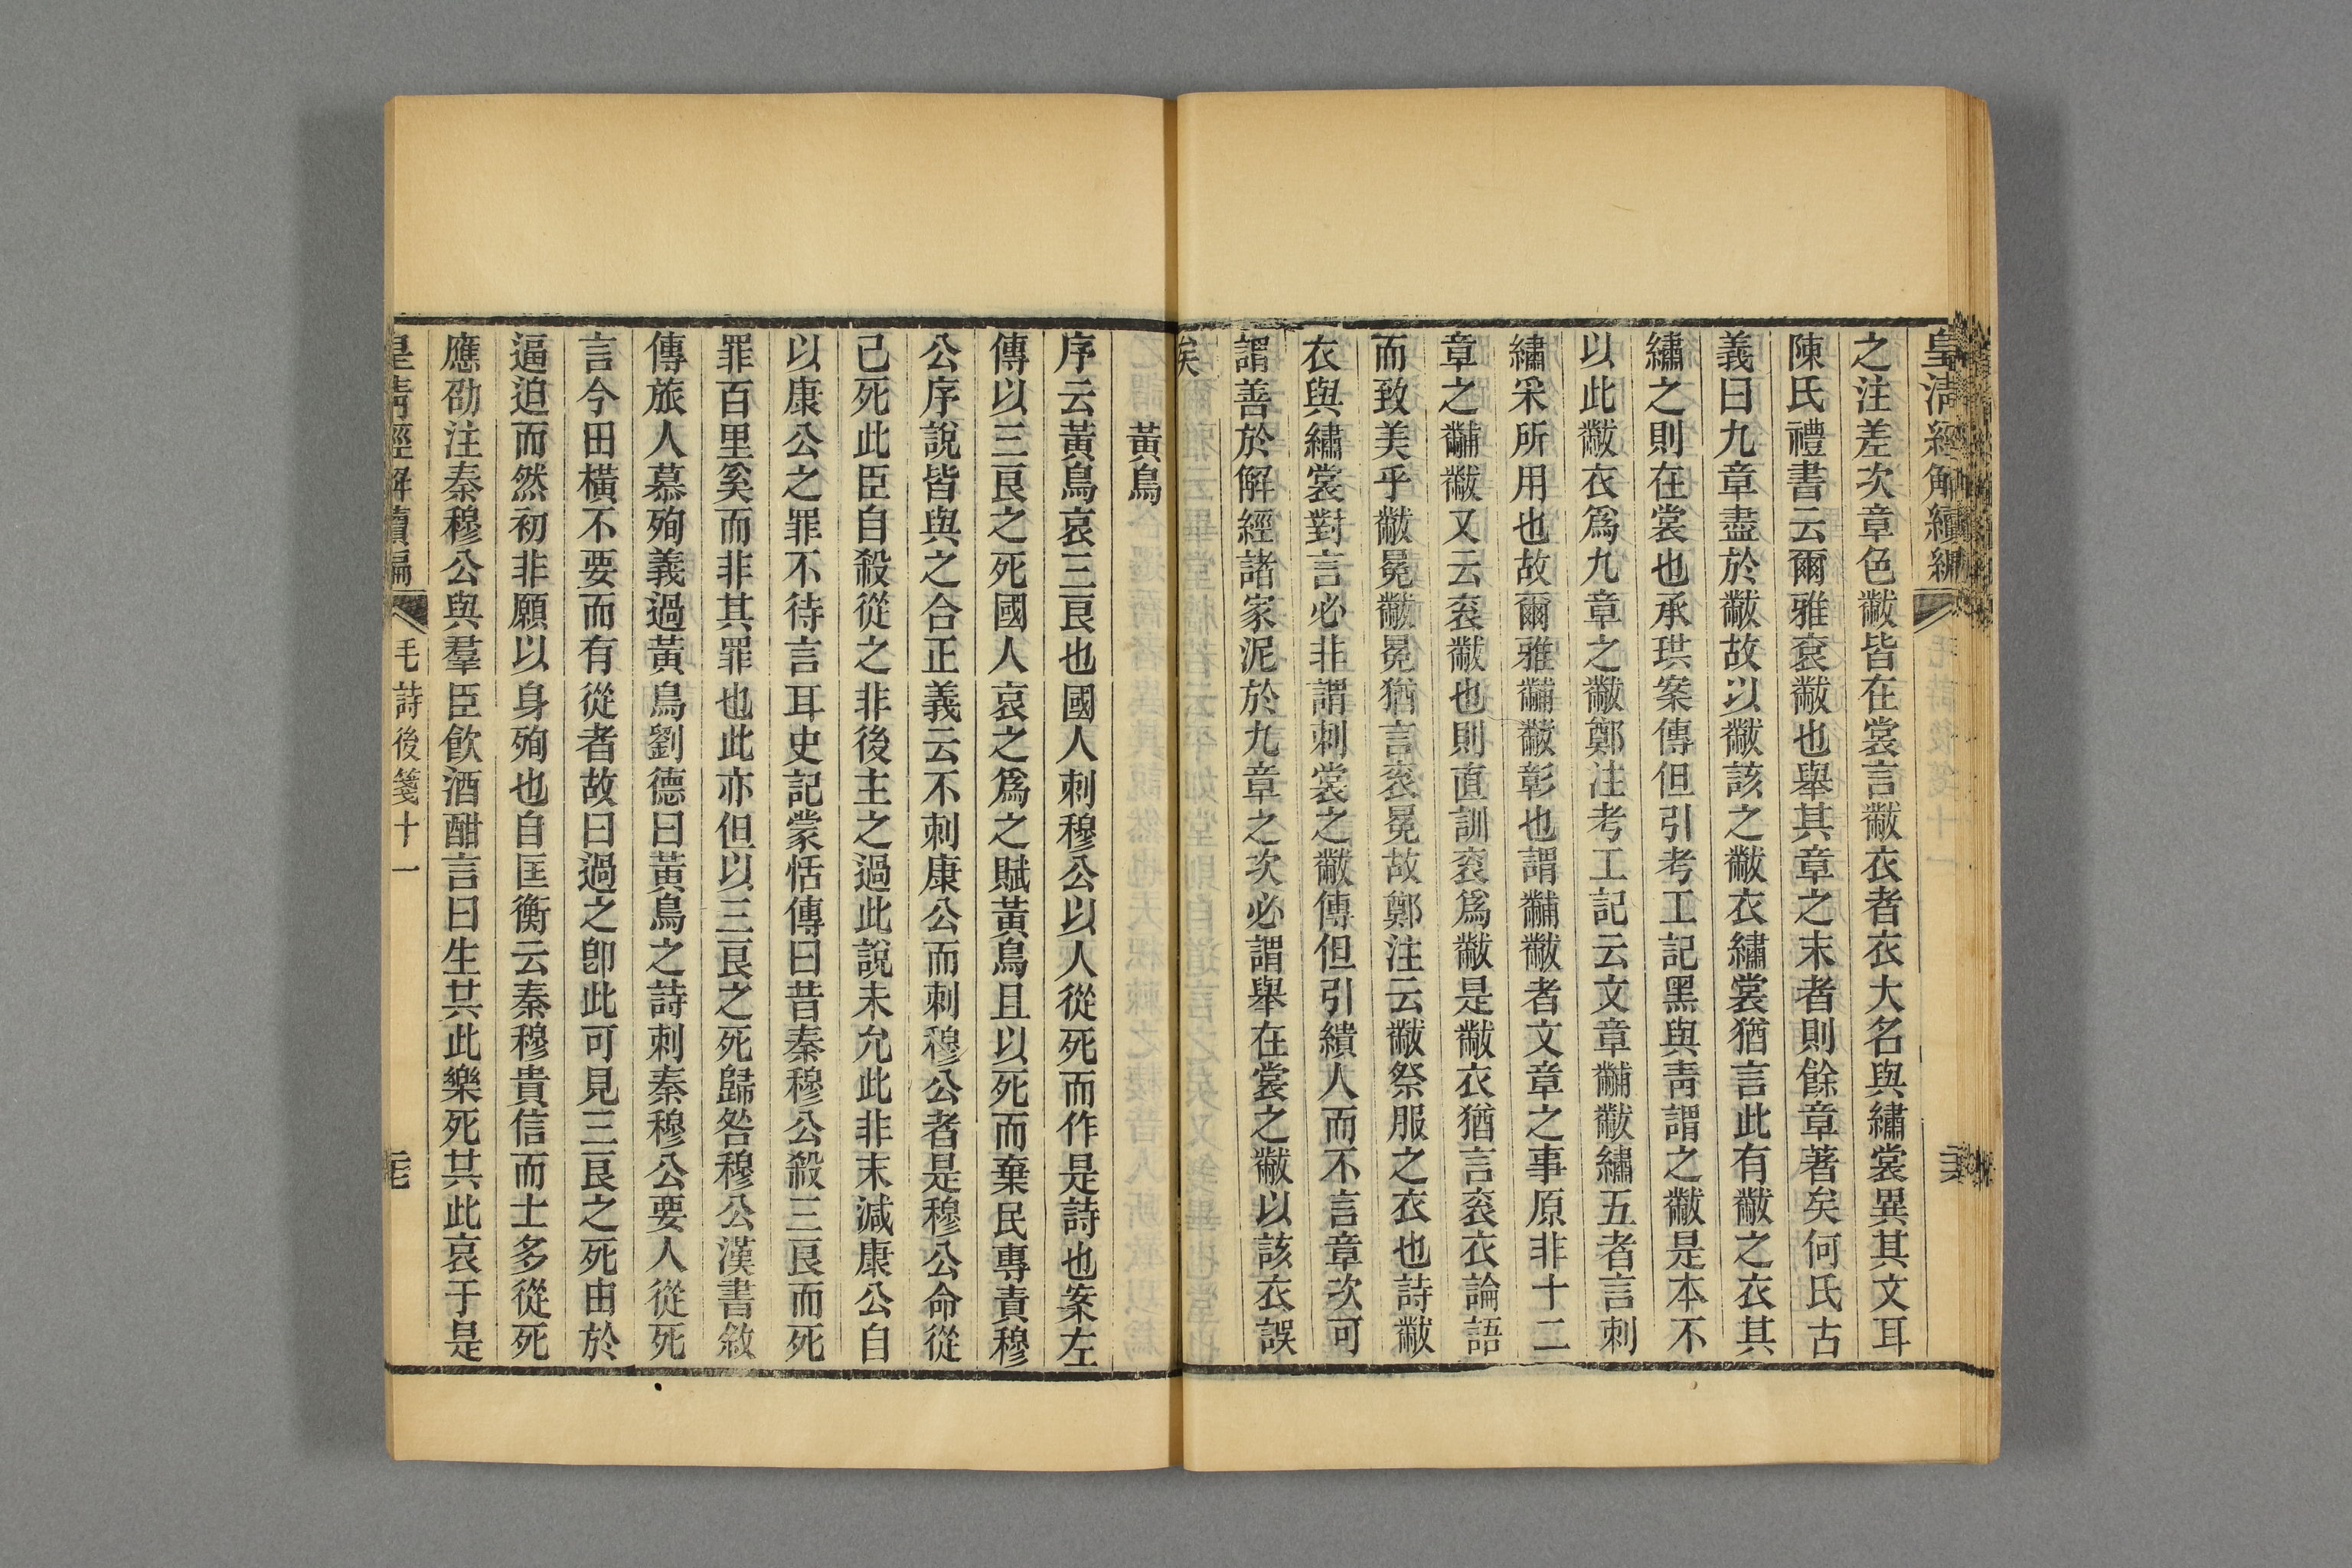 皇清經解續編
之注差次章色黻皆在裳言黻衣者衣大名與繡裳異其文耳
陳氏禮書云爾雅袞黻也舉其章之末者則餘章著矣何氏古
義曰九章盡於黻故以黻該之黻衣繡裳猶言此有黻之衣其
繡之則在裳也承珙案傳但引考工記黑與靑謂之黻是本不
以此黻衣爲九章之黻鄭注考工記云文章黼黻繡五者言刺
繡采所用也故爾雅黼黻彰也謂黼黻者文章之事原非十二
章之黼黻又云袞黻也則直訓袞爲黻是黻衣猶言袞衣論語
而致美乎黻冕黻冕猶言袞冕故鄭注云黻祭服之衣也詩黻
衣與繡裳對言必非謂刺裳之黻傳但引繢人而不言章次可
謂善於解經諸家泥於九章之次必謂舉在裳之黻以該衣誤
矣
黃鳥
序云黃鳥哀三良也國人刺穆公以人從死而作是詩也案左
傳以三良之死國人哀之爲之賦黃鳥且以死而棄民專責穆
公序說皆與之合正義云不刺康公而刺穆公者是穆公命從
己死此臣自殺從之非後主之過此說未允此非末減康公自
以康公之罪不待言耳史記蒙恬傳曰昔秦穆公殺三良而死
罪百里奚而非其罪也此亦但以三良之死歸咎穆公漢書敘
傳旅人慕殉義過黃鳥劉德曰黃鳥之詩刺秦穆公要人從死
言今田橫不要而有從者故曰過之卽此可見三良之死由於
逼迫而然初非願以身殉也自匡衡云秦穆貴信而士多從死
應劭注秦穆公與羣臣飮酒酣言曰生共此樂死共此哀于是
皇淸經解續編 毛詩後箋十一